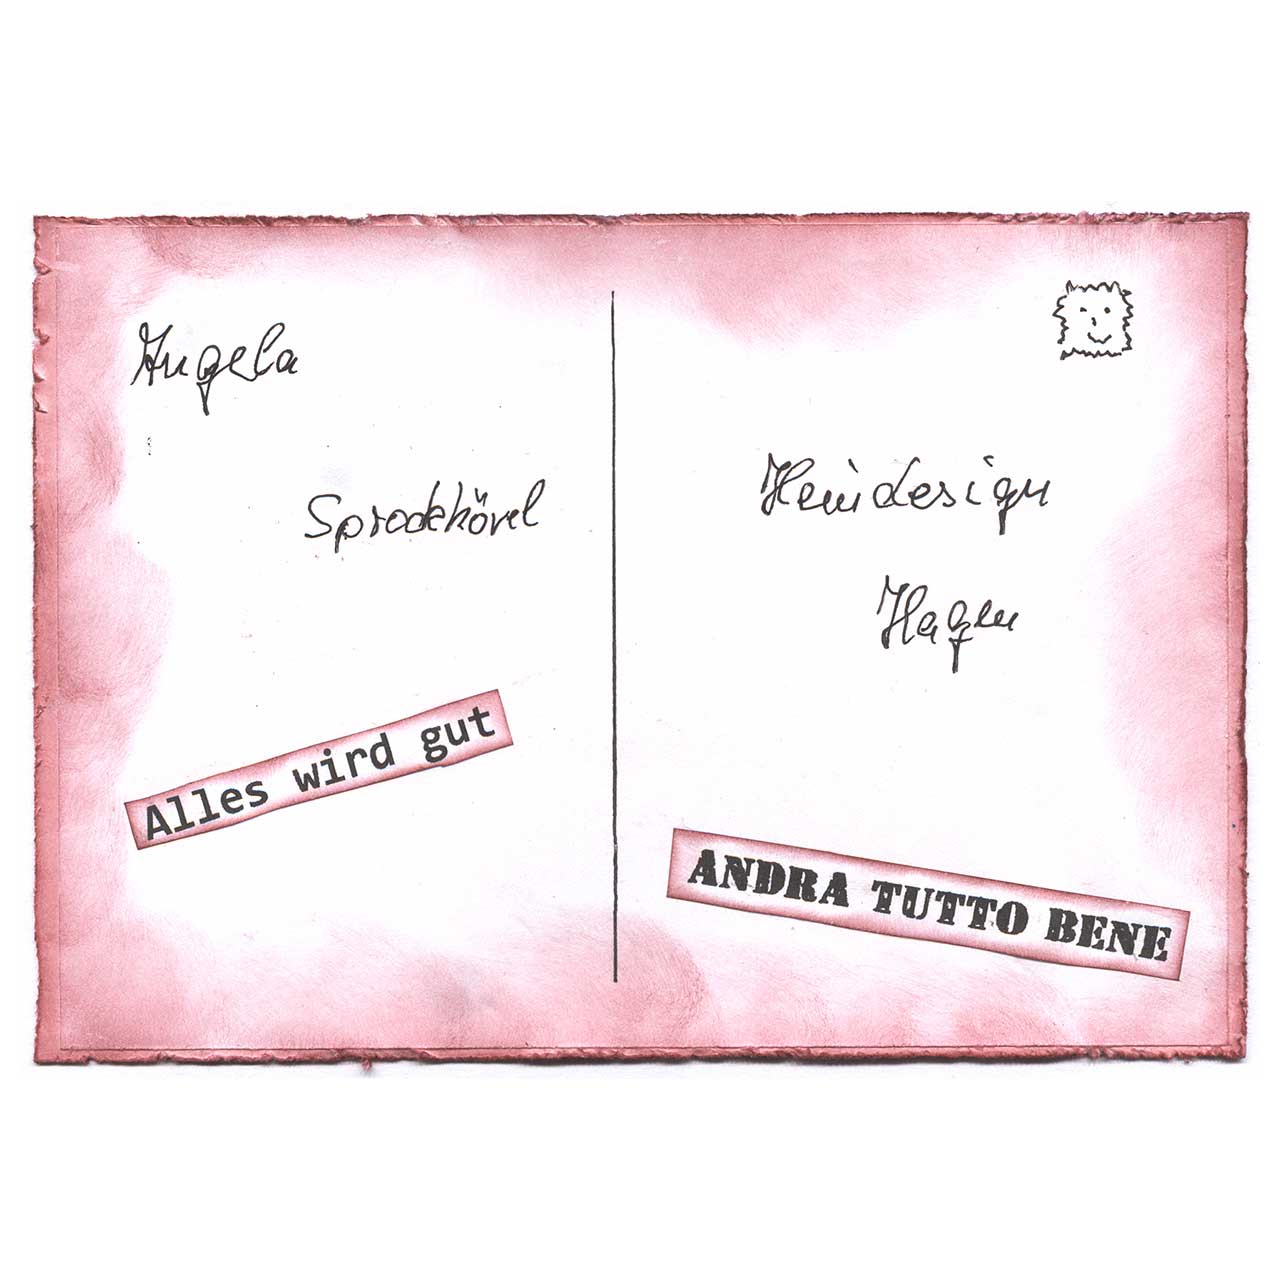 Angela
Sprockhövel
Alles wird gut
Heindesign
Hagen
ANDRA TUTTO BENE